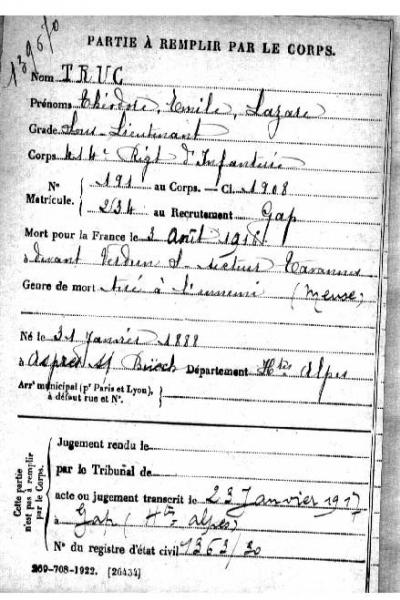 139670
PARTIE À REMPLIR PAR LE CORPS.
Nom TRUC
Prénoms Théodore, Emile, Lazare
Grade Sous-Lieutenant
Corps 414e Régt d'Infanterie
N° Matricule. 191 au Corps. — Cl. 1908
234 au Recrutement Gap
Mort pour la France le 3 Août 1916
à devant Verdun S. secteur Tavannes
Genre de mort tué à l'ennemi (Meuse)
Né le 31 Janvier 1888
à Aspres s/ Buëch Département Htes Alpes
Arrt municipal (pr Paris et Lyon),
à défaut rue et N°.
Cette partie n'est pas à remplir par le Corps.
Jugement rendu le
par le Tribunal de
acte ou jugement transcrit le 23 Janvier 1917
à Gap (Htes Alpes)
N° du registre d'état civil 1363/30
269-708-1922. [26434]